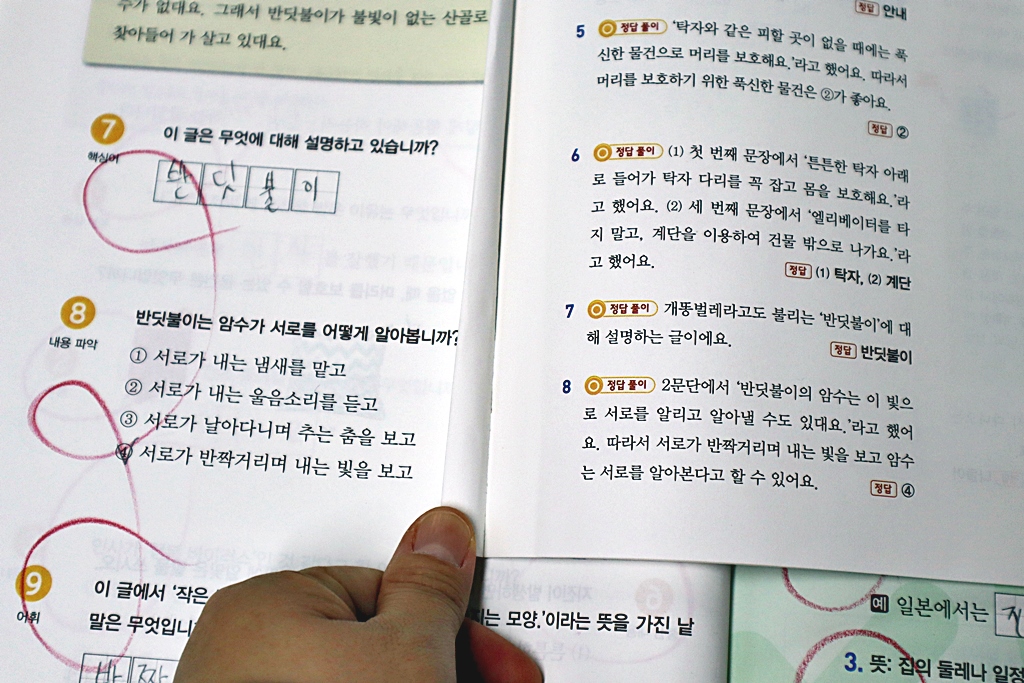 수가 없대요. 그래서 반딧불이가 불빛이 없는 산골로
찾아들어 가 살고 있대요.
7
핵심어
이 글은 무엇에 대해 설명하고 있습니까?
반 딧 불 이
8
내용 파악
반딧불이는 암수가 서로를 어떻게 알아봅니까?
① 서로가 내는 냄새를 맡고
② 서로가 내는 울음소리를 듣고
③ 서로가 날아다니며 추는 춤을 보고
④ 서로가 반짝거리며 내는 빛을 보고
9
어휘
이 글에서 '작은
는 모양.'이라는 뜻을 가진 낱
말은 무엇입니
반 짝
정답 안내
5 정답 풀이 '탁자와 같은 피할 곳이 없을 때에는 푹
신한 물건으로 머리를 보호해요.'라고 했어요. 따라서
머리를 보호하기 위한 푹신한 물건은 ②가 좋아요.
정답 ②
6 정답 풀이 (1) 첫 번째 문장에서 '튼튼한 탁자 아래
로 들어가 탁자 다리를 꼭 잡고 몸을 보호해요.'라
고 했어요. (2) 세 번째 문장에서 '엘리베이터를 타
지 말고, 계단을 이용하여 건물 밖으로 나가요.'라
고 했어요.
정답 (1) 탁자, (2) 계단
7 정답 풀이 개똥벌레라고도 불리는 '반딧불이'에 대
해 설명하는 글이에요.
정답 반딧불이
8 정답 풀이 2문단에서 '반딧불이의 암수는 이 빛으
로 서로를 알리고 알아낼 수도 있대요.'라고 했어
요. 따라서 서로가 반짝거리며 내는 빛을 보고 암수
는 서로를 알아본다고 할 수 있어요.
정답 ④
예 일본에서는
3. 뜻: 집의 둘레나 일정